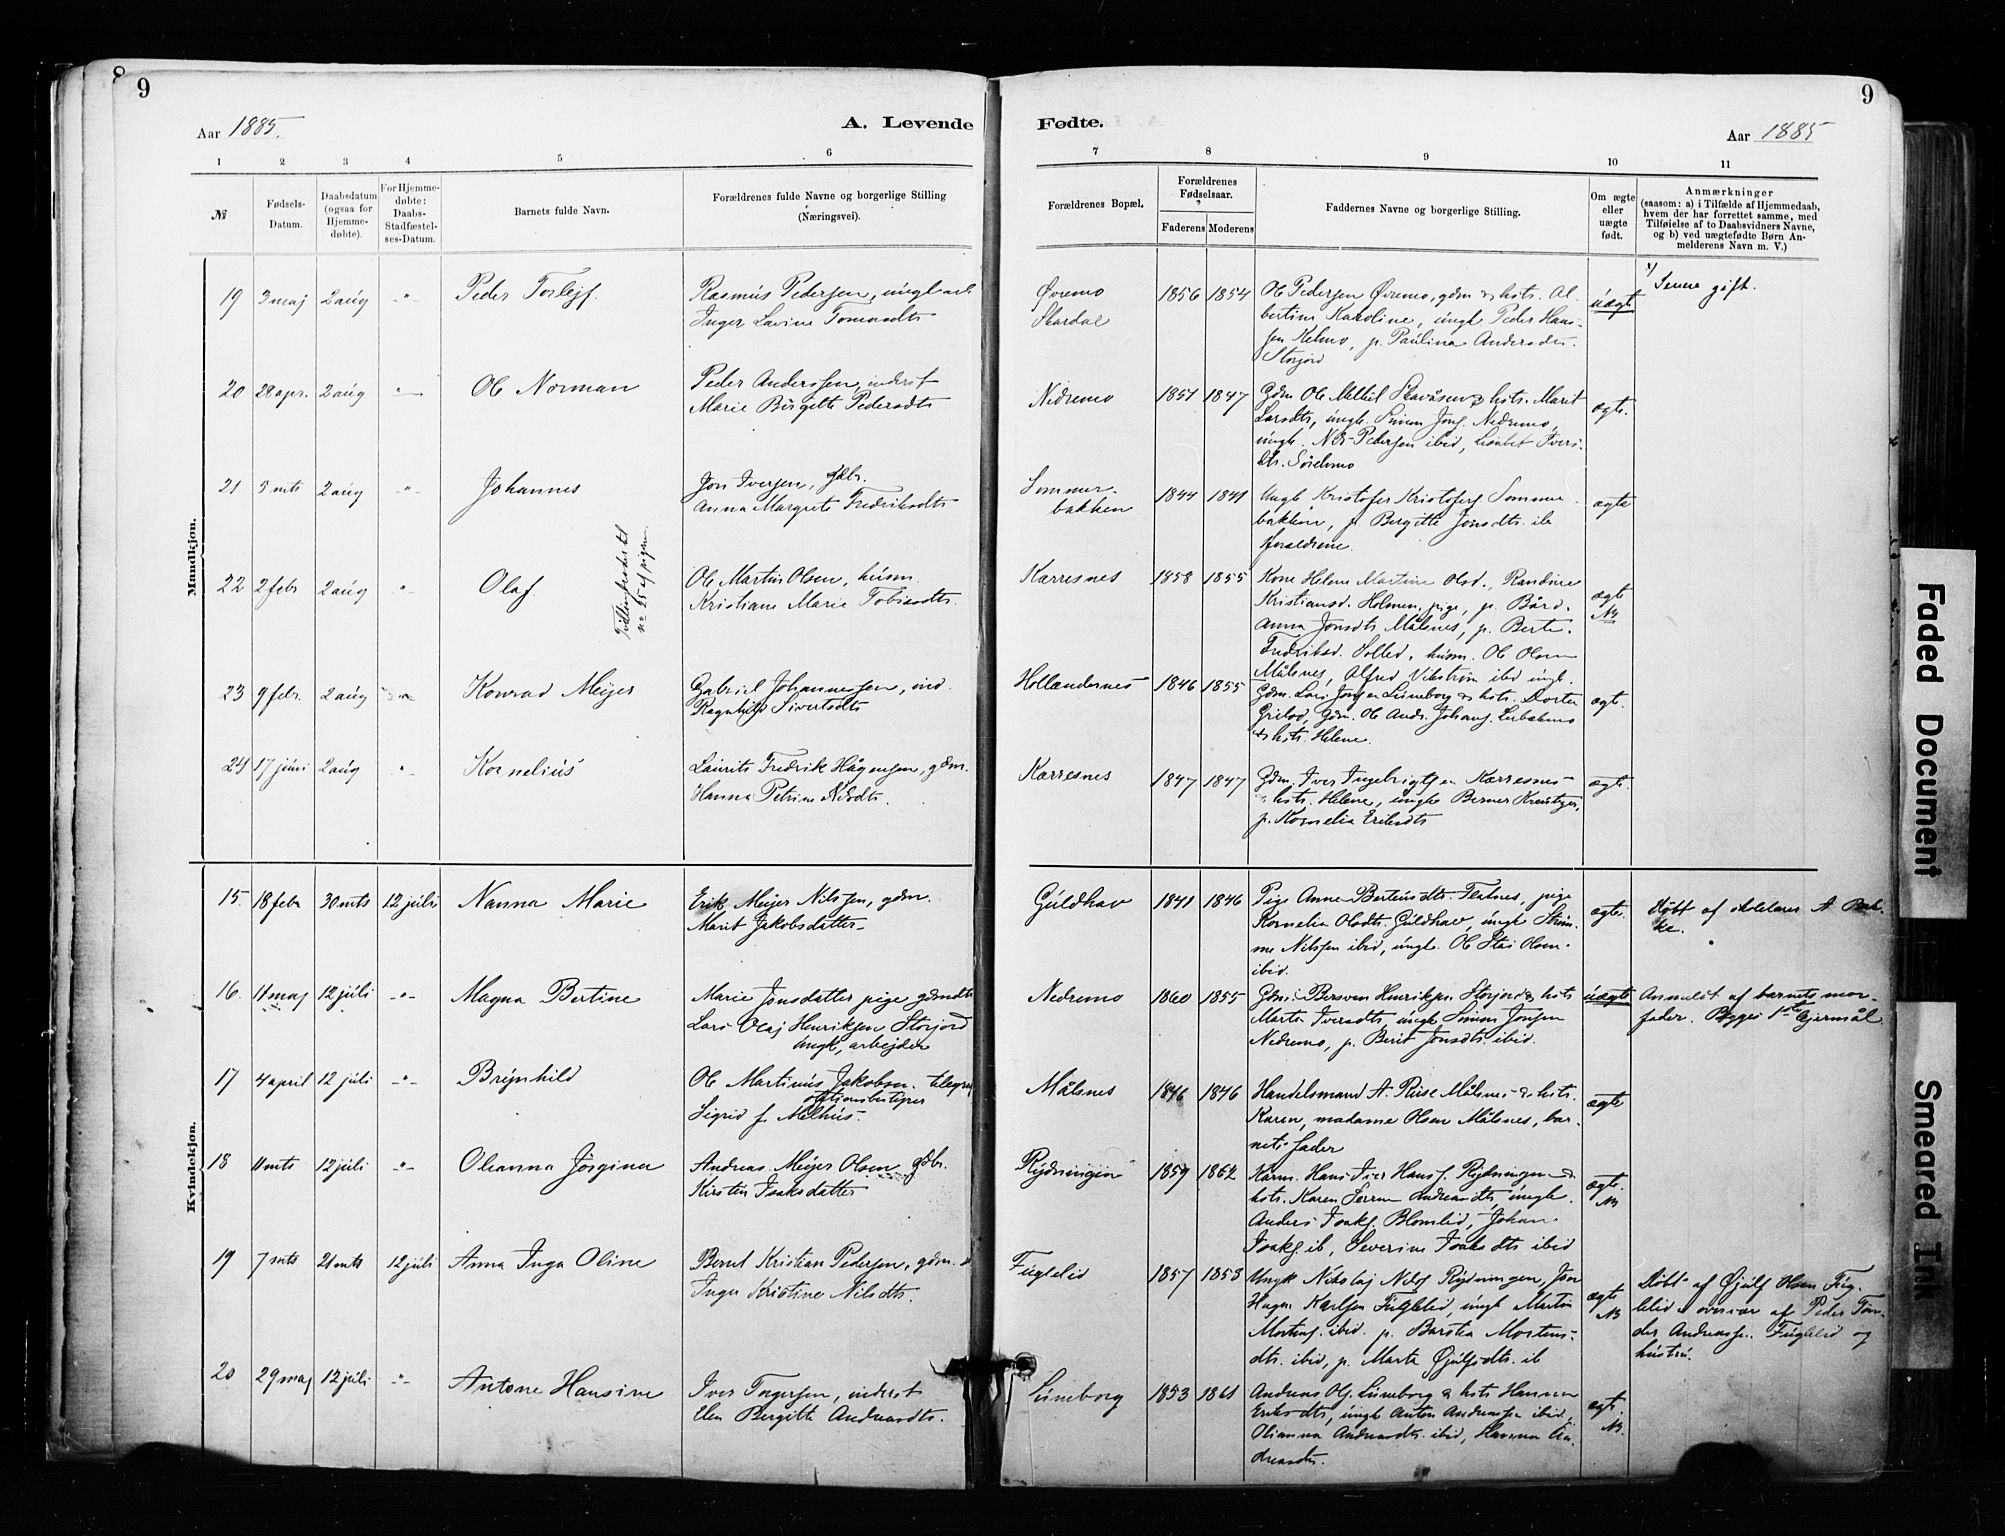 9
9
Aar 1885.
A. Levende
Fødte.
Aar 1885
1 2 3 4 5 6
7 8 9 10 11
№
Fødsels-Datum.
Daabsdatum (ogsaa for Hjemme-døbte).
For Hjemme-døbte: Daabs-Stadfæstel-ses-Datum.
Barnets fulde Navn.
Forældrenes fulde Navne og borgerlige Stilling (Næringsvei).
Forældrenes Bopæl.
Forældrenes Fødselsaar.
Faderens Moderens
Faddernes Navne og borgerlige Stilling.
Om ægte eller uægte født.
Anmærkninger
(saasom: a) i Tilfælde af Hjemmedaab,
hvem der har forrettet samme, med
Tilføielse af to Daabsvidners Navne,
og b) ved uægtefødte Børn An-
melderens Navn m. V.)
Mandkjøn.
19 3 maj 2 aug -"- Peder Torlejf.
Rasmus Pedersen, ungk.
Inger Lavine Tomasdts
Øvremo
Skardal
1856 1854
Ole Pedersen Øvremo, gdm & hst. Al-
bertine Karoline, ungk Peder Hans-
sen Kelmo, p. Paulina Andersdts.
Storjord
uægte
Senere gift.
20 28 apr. 2 aug -"- Ole Norman
Peder Anderssen, inderst
Marie Birgitte Pedersdts
Nedremo
1851 1847
Gdm Ole Mikkel & hst. Marit
Larsdts, ungk. Simon Jons. Nedremo,
ungk. Nils Pedersen ibid, Lisabet Ivers-
dts.
ægte.
21 5 mts 2 aug -"- Johannes
Jon Iversen, gdbr.
Anna Margrete Fredriksdts
Sommer-
bakken
1844 1841
Ungk Kristofer Kristofers. Sommer-
bakken, p. Bergitte Jonsdts. ib
forældrene.
ægte
22 2 febr 2 aug -"- Olaf
Tvillingbroder til
no 25 af pigerne
Ole Martin Olsen, husm.
Kristiane Marie Tobiasdts.
Karresnes
1858 1855
Kone Helene Martine Olsd., Randine
Kristiansd. Holmen, pige, p. Bård.
Anna Jonsdts Målsnes, p. Berte
Fredriksd. Solled, husm. Ole Olsen
Målsnes, Alfred Vikstrøm ibid ungk.
ægte
N.
23 9 febr. 2 aug Konrad Meijer
Gabriel Johannessen, ind.
Ragnhild Sivertsdts
Hollændernes
1846 1855
Gdm. Lars Jonsen Lüneborg & hst. Dorten
Grilsd, Gdm. Ole Andr. Johans. Lerbakmo
& hst. Helene.
ægt.
24 17 juni 2 aug " Kornelius
Laurits Fredrik Hågensen, gdm.
Hanna Petrine Nilsdts.
Karresnes
1847 1847
Gdm. Iver Ingebrigtsen Karresnes
hst. Helene, ungk Berner
p. Kornelia Eriksdts
ægt.
Kvindekjøn.
15. 18 febr 30 mts 12 juli Nanna Marie
Erik Meijer Nilssen, gdm.
Marit Jakobsdatter
Guldhav
1841 1846
Pige Anne Berteusdts. Tennes, pige
Kornelia Olsdts. Guldhav, ungk
Nilssen ibid, ungk. Ole Olsen
ibid.
ægte.
Døbt af A.
16. 11 maj 12 juli -"- Magna Bertine
Marie Jonsdatter pige gdmdts
Lars Olaj Henriksen Storjord
ungk, arbejder
Nedremo
1860 1855
Gdm. Bersven Henriksen Storjord & hst
Marta Iversdts ungk Simon Jonsen
Nedremo, p. Berit Jonsdts. ibid.
uægte
Anmeldt af barnets mor-
fader. Begges 1ste Lejermål.
17 4 april 12 juli -"- Brynhild
Ole Martinus Jakobsen. telegraf
stationsbestyrer
Sigrid f. Melhus.
Målsnes
1846 1846
Handelsmand A. Riise Målsnes & hst.
Karen, madame Olsen Målsnes, bar-
nets fader
ægte
18 11 mts 12 juli -"- Oleanna Jørgine
Andreas Meijer Olsen gdbr.
Kirsten Isaksdatter
Rydningen
1859 1862
Kårm. Hans Iver Hans s. Rydningen &
hst. Karen Serine Andreasdts, ungk.
Anders Isaks. Blomlid, Johan
Isaks. ib, Severine Isaksdts ibid
ægte.
N.
19 7 mts 21 mts 12 juli Anna Inga Oline
Bernt Kristian Pedersen, gdm.
Inger Kristine Nilsdts.
Fuglelid
1857 1853
Ungk Nikolaj Nilss Rydningen, Jon
Hagen Karlsen Fuglelid, ungk Martin
Mortens. ibid. p. Barstta Mortens-
dts. ibid, p. Marta Øjulfsdts. ib
ægte
N.
Døbt af Øjulf Olsen Fug-
lelid overvær af Peder Tøn-
der Andreass. Fuglelid og
hustru.
20 29 maj 12 juli -"- Antone Hansine
Iver Torgersen, inderst
Elen Bergitte Andreasdts.
Luneborg
1853 1861
Andreas Ols. Luneborg & hst Hanna
Eriksdts, ungk Anton Andreassen ibid,
Olianna Andreasdts. ibid, Hanna An-
dreasdts.
ægt.
N.
Faded Document
Smeared Ink